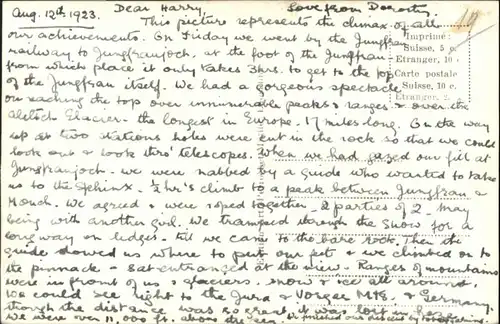 Aug. 12th 1923. Dear Harry, Love from Dorothy.
This picture represents the climax of all
our achievements. On Friday we went by the Jungfrau
railway to Jungfraujoch, at the foot of the Jungfrau
from which place it only takes 3hrs. to get to the top
of the Jungfrau itself. We had a gorgeous spectacle
on reaching the top over innumerable peaks & ranges & over the
Aletsch Glacier - the longest in Europe. 17 miles long. On the way
up at two stations holes were cut in the rock so that we could
look out & look thro' telescopes. When we had gazed our fill at
Jungfraujoch - we were nabbed by a guide who wanted to take
us to the Sphinx. ½hr's climb to a peak between Jungfrau &
Monch. We agreed & were roped together, 2 parties of 2 May
being with another girl. We tramped through the snow for a
long way on ledges - till we came to the bare rock. Then the
guide showed us where to put our feet & we climbed on to
the pinnacle - sat entranced at the view. Ranges of mountains
were in front of us & glaciers. snow & ice all around.
We could see right to the Jura & Vosges Mts. & Germany,
though the distance was so great it was lost in haze
We were over 11,000 ft. above the sea. We finished our descent by
Imprimé:
Suisse, 5 c.
Etranger, 10 c.
Carte postale
Suisse, 10 c.
Etranger,